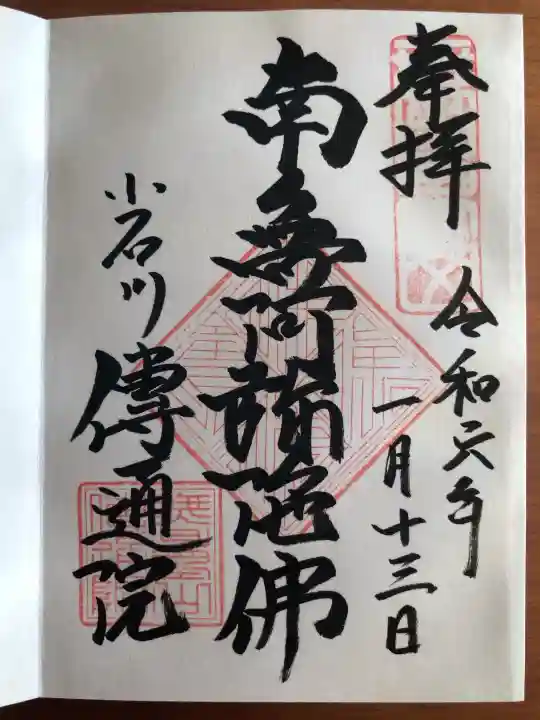 奉拝
令和六年
一月十三日
南無阿弥陀佛
小石川
傳通院